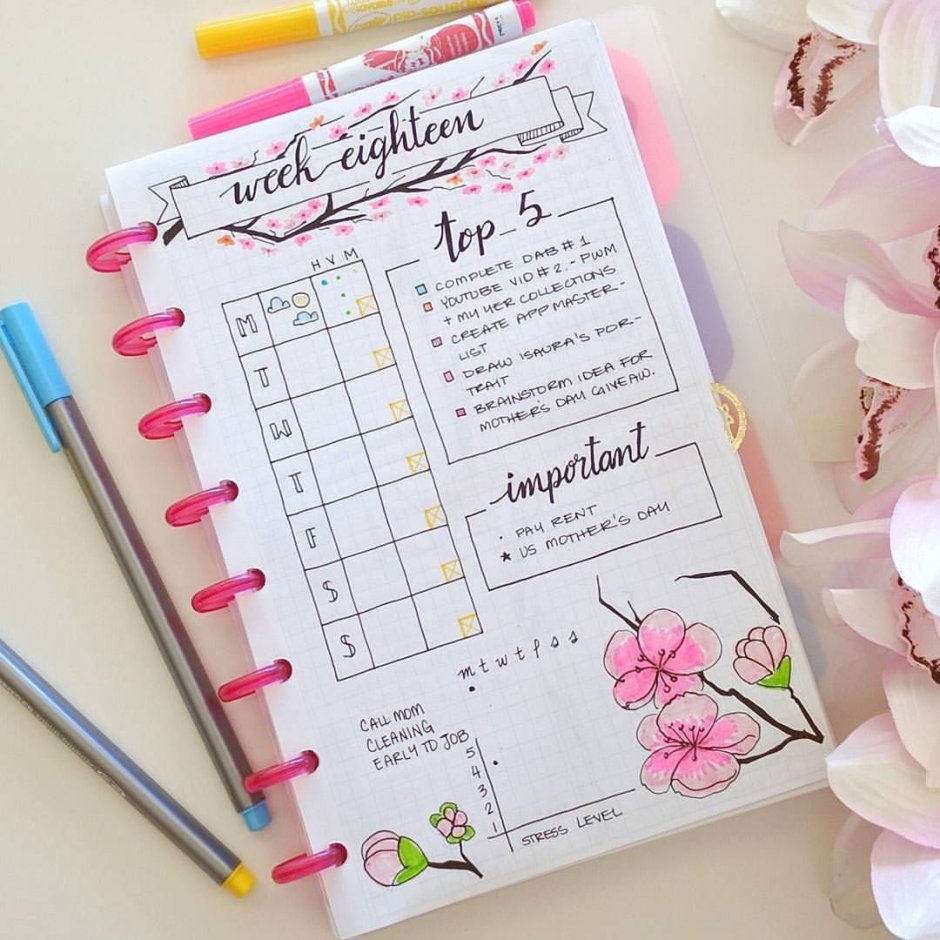 week eighteen
top 5
COMPLETE DAB #1
YOUTUBE VID #2. - PWM
+ MY HER COLLECTIONS
CREATE APP MASTER-
LIST
DRAW ISAURA'S POR-
TRAIT
BRAINSTORM IDEA FOR
MOTHER'S DAY GIVEAW.
H V M
M
T
W
T
F
S
S
important
· PAY RENT
★ US MOTHER'S DAY
m t w t f s s
CALL MOM
CLEANING
EARLY TO JOB
5
4
3
2
1
STRESS LEVEL